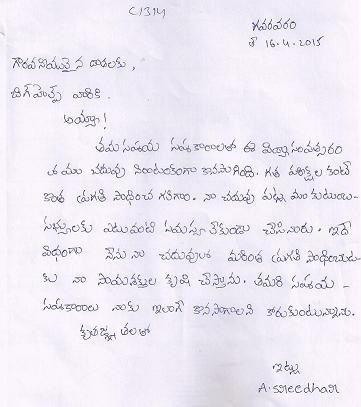 C1314
గవరవరం
తే 16.4.2015
గౌరవనీయులైన దాతలకు,
బిగ్ హెల్ప్ వారికి.
అయ్యా!
తమ సహాయ సహకారాలతో ఈ విద్యా సంవత్సరం
చదువు నిరాటంకంగా కొనసాగింది. గత పరీక్షల కంటే
కొంత ప్రగతి సాధించ గలిగాం. నా చదువు పట్ల మా కుటుంబ-
సభ్యులకు ఎటువంటి సమస్యా లేకుండా చేసినారు. ఇదే
విధంగా నేను నా చదువులో మరింత ప్రగతి సాధించుట-
కు నా సాయశక్తుల కృషి చేస్తాను. తమరి సహాయ -
సహకారాలు నాకు ఇలాగే కొనసాగాలని కోరుకుంటున్నాను.
కృతజ్ఞతలతో
ఇట్లు
A. sreedhar